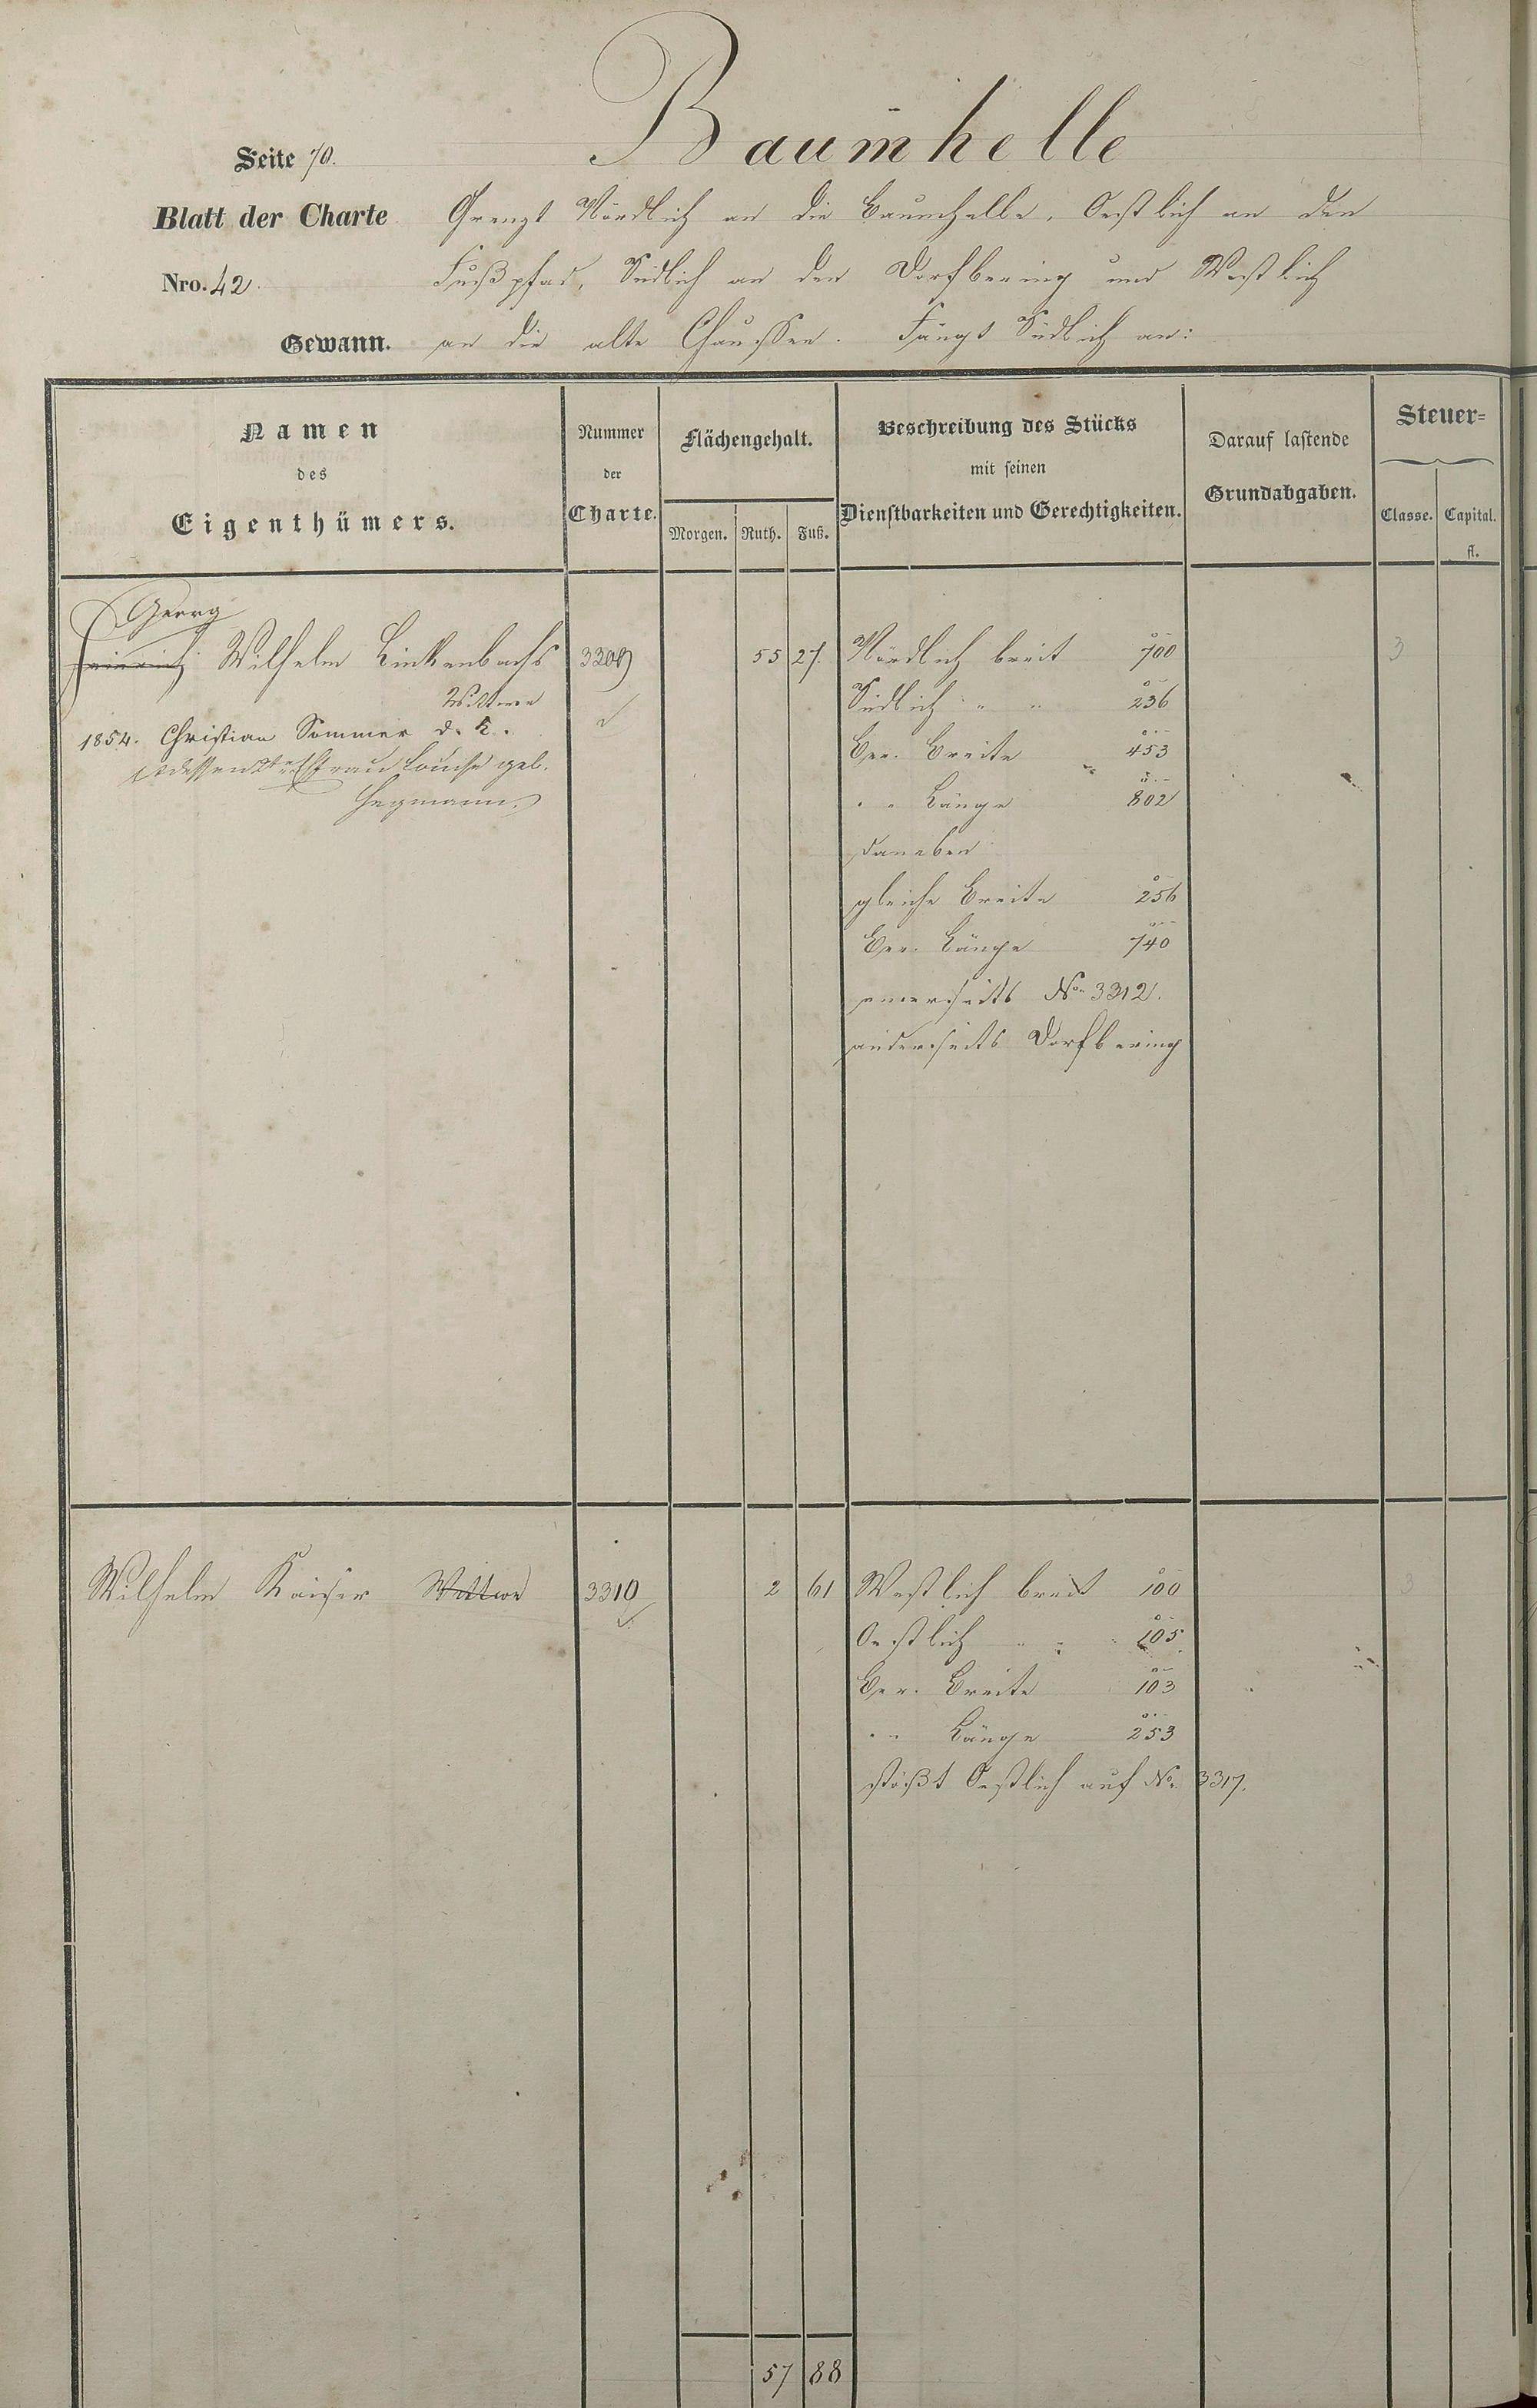 Baumhelle
Seite 70.
Blatt der Charte Grenzt Nördlich an die Baumhelle, Oestlich an den
Nro. 42. Fußpfad, Südlich an den Dorfbering und Westlich
Gewann. an die alte Chaussee. Fängt Südlich an:
Namen
des
Eigenthümers.
Nummer
der
Charte.
Flächengehalt.
Morgen. Ruth. Fuß.
Beschreibung des Stücks
mit seinen
Dienstbarkeiten und Gerechtigkeiten.
Darauf lastende
Grundabgaben.
Steuer-
Classe. Capital.
fl.
Georg
Heinrich Wilhelm Linkenbachs 3309 55 27. Nördlich breit 700 3
Wittwe Südlich " " 236
1854. Christian Sommer d. K. Ber. Breite 453
dessen Ehfrau Louise geb. " " Länge 802
Hegmann
daneben
gleiche Breite 256
Ber. Länge 740
einerseits No 3312.
anderseits Dorfbering
Wilhelm Kaiser Wittwe 3310 2 61 Westlich breit 100 3
Oestlich " " 105
Ber. Breite 103
" " Länge 253
stößt Oestlich auf No. 3317.
57 88